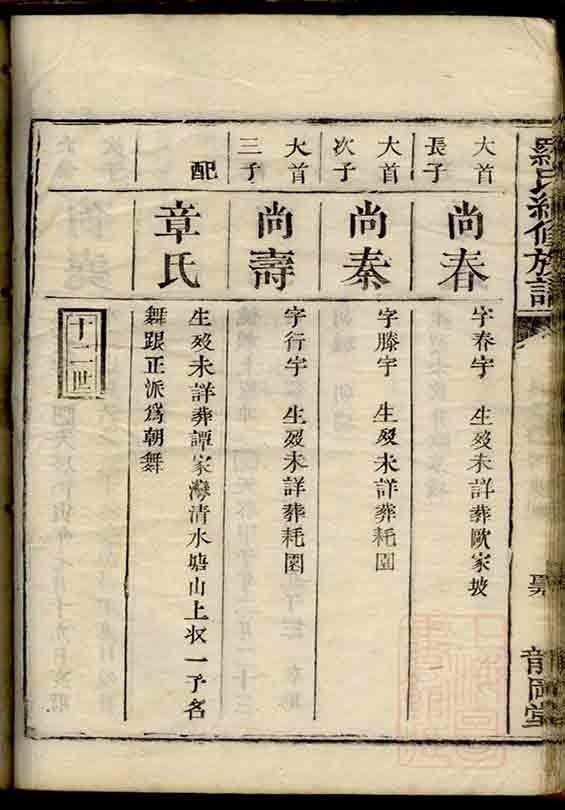 羅氏續修族譜
龍岡堂
大首
長子
尚春
字春宇 生歿未詳葬歐家坡
大首
次子
尚秦
字滕宇 生歿未詳葬耗園
大首
三子
尚壽
字行宇 生歿未詳葬耗園
配
章氏
生歿未詳葬譚家灣清水塘山上収一子名
舞跟正派為朝舞
十二世